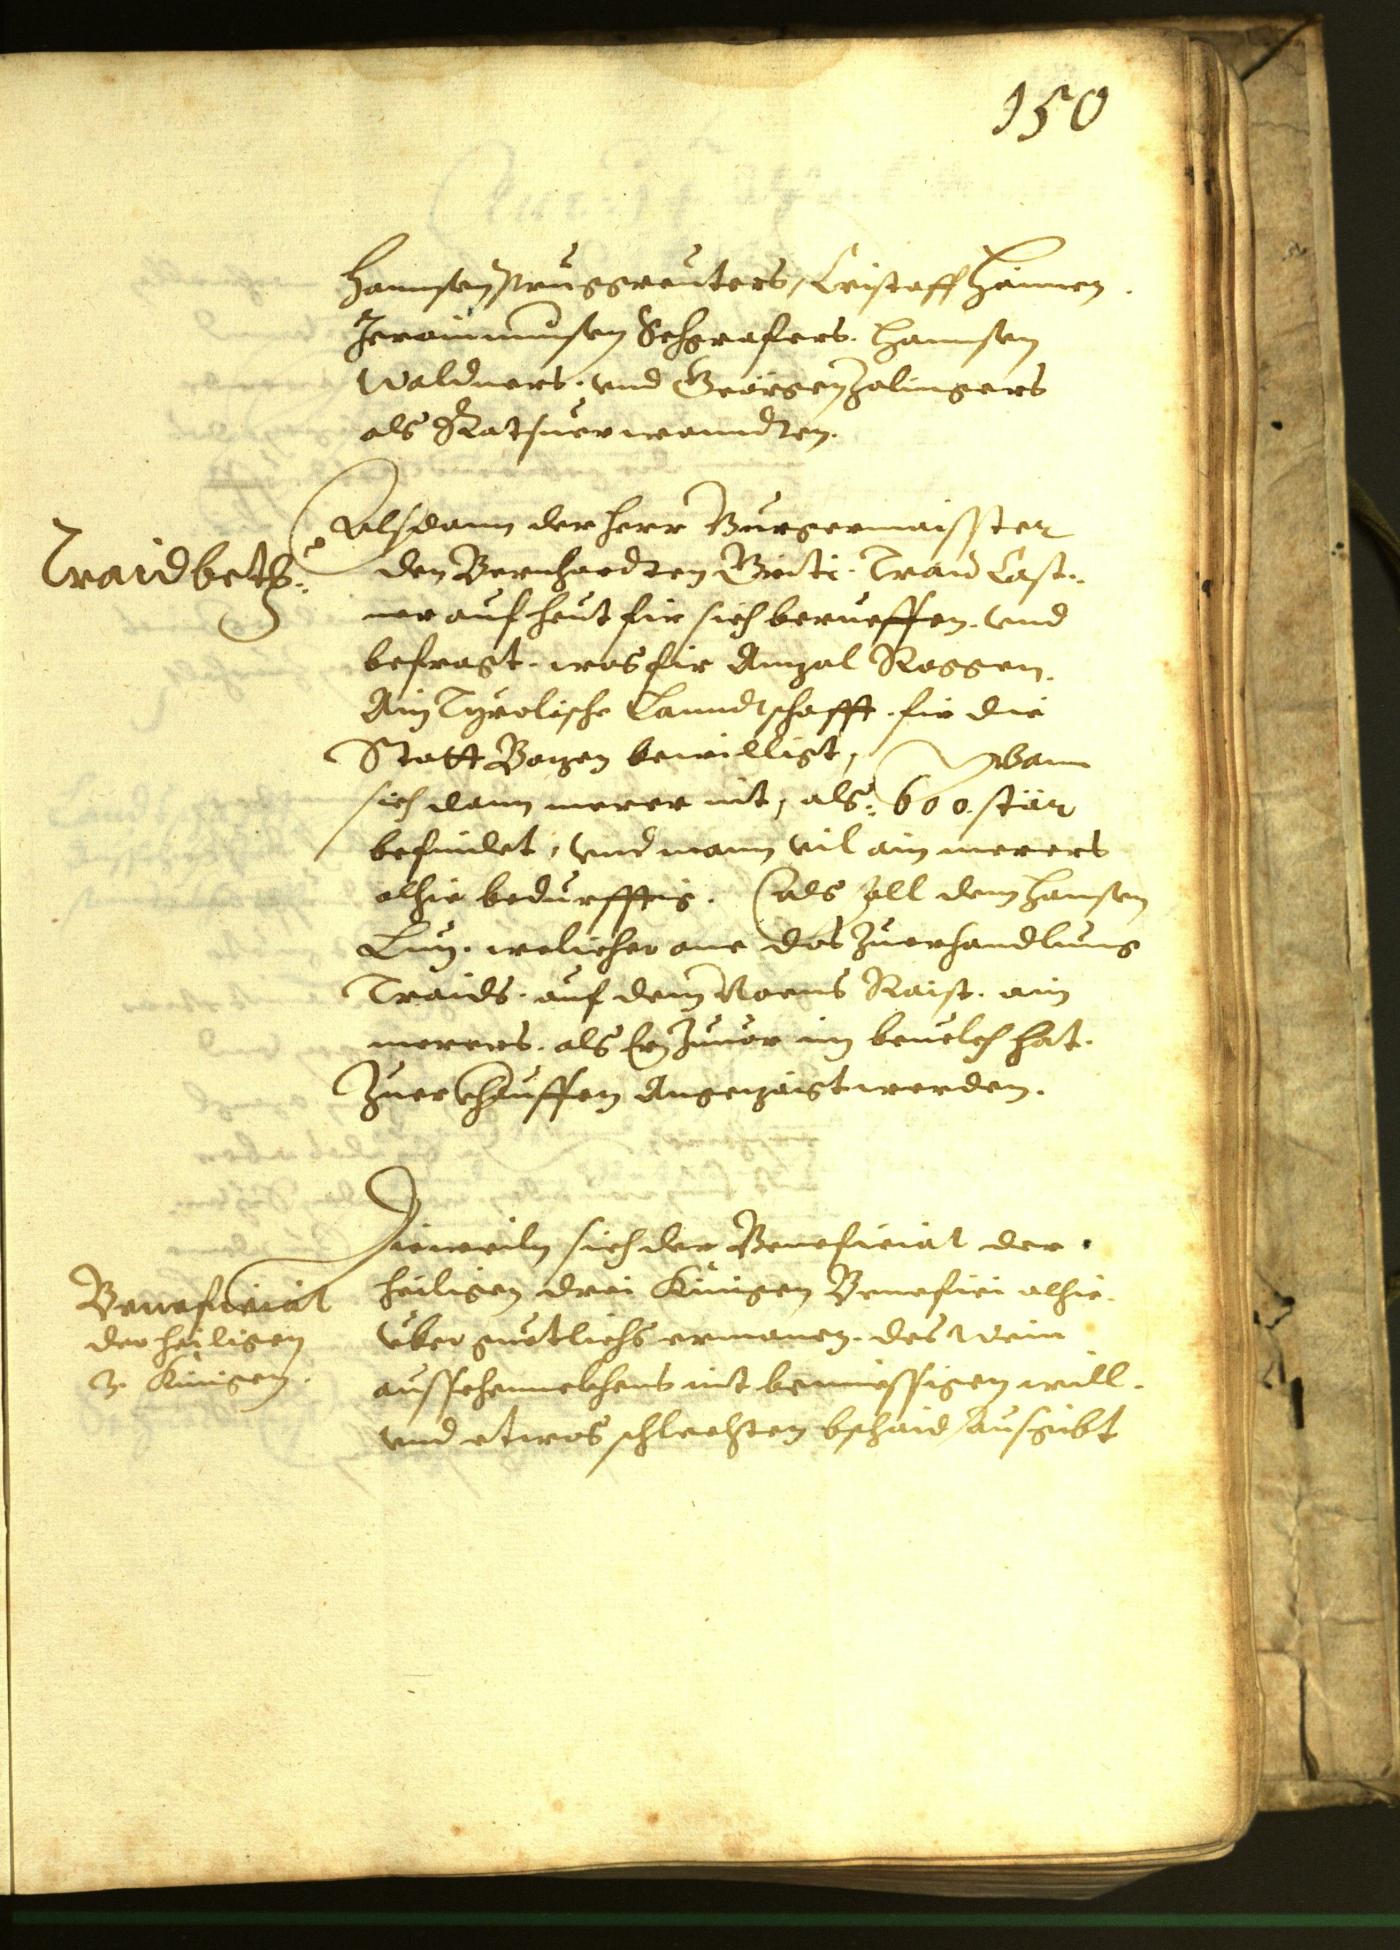 150
Hannsen Pruggreuters, Cristoff Hainen
Jeronimusen Schgrafers. Hannsen
Waldners. vnd Geörgen Zalingers
als Ratsuerwanndten.
Traidbeth:
Alsdann der herr Burgermaisster
den Bernhardten Traid Cast:
ner auf heut fir sich berueffen. vnd
befragt. was fir Anzal Roggen.
Ain Tyrolische Lanndtschafft. fir die
Statt Bozen bewilligt, Wann
sich dann merer nit, als: 600. stär
befindet, vnd mann vil ain merers
alhie bedurfftig. als soll dem Hansen
Lun. welicher ane das zuerhandlung
Traids. auf dem Raist. ain
merers. als Er zuuor in beuelch hat.
Zuerkhauffen Angezaigt werden.
Beneficiat
der heiligen
3. Künigen.
Dieweiln sich der Beneficiat der
heiligen drei Künigen Benefici alhie.
über guetlichs ermanen. des Wein
ausschennckhens nit bemüessigen will.
vnd etwas schlechten bschaid ausgibt